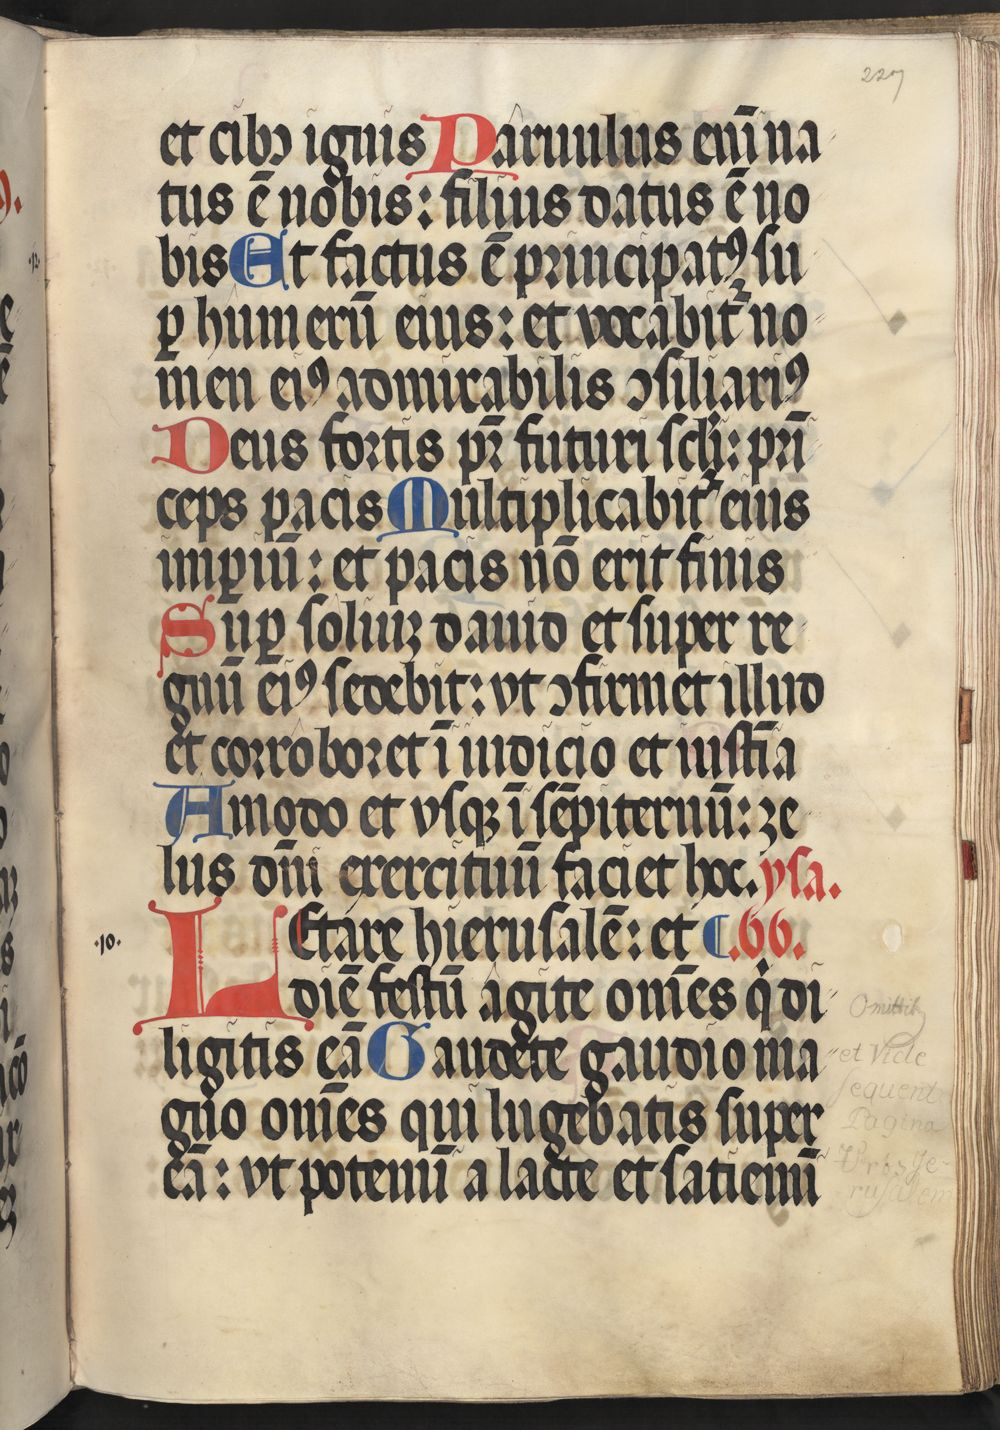 227
et cibꝯ ignis Paruulus eni᷈ na
tus ē nobis: filius datus ē no
bis Et factus ē principatꝰ su
ꝑ humerū eius: et vocabit᷑ no
men eiꝰ admirabilis ꝯsiliariꝰ
Deus fortis pr̄ futuri scl̄i: pri̅
ceps pacis Multiplicabit᷑ eius
imꝑiū: et pacis nō erit finis
Suꝑ soliuꝫ dauid et super re
gnū eiꝰ sedebit: vt ꝯfirmet illud
et corroboret ī iudicio et iusti̅a
Amodo et vsqꝫ ī se̅piternū: ze
lus dn̄i exercituū faciet hoc. ysa.
·10· LEtare hierusalē: et ¶.66.
diē festū agite om̄es q̇ di
ligitis eā Gaudete gaudio ma
gno om̄es qui lugebatis super
eā: vt potemī a lacte et satiemī
Omittit᷑
et Vide
sequent
Pagina
Vrbs Je-
rusalem